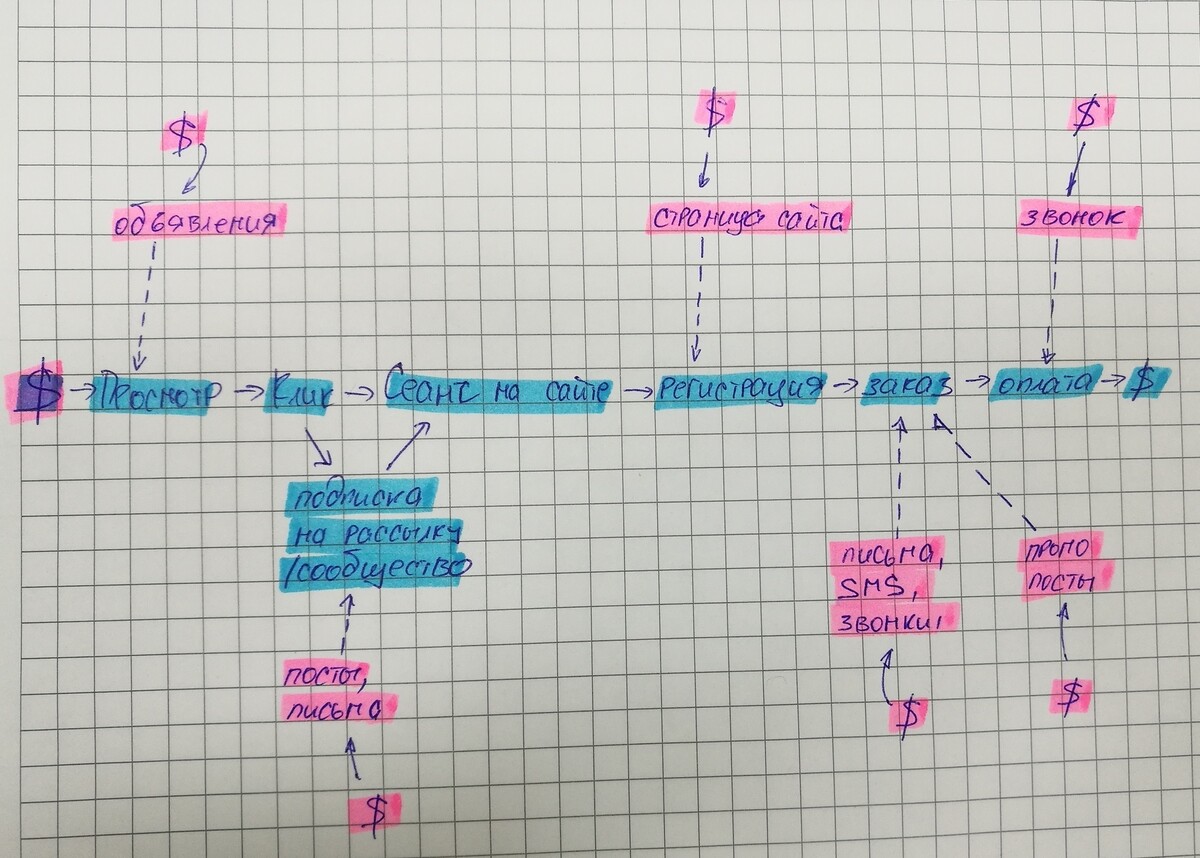 $
$
$
объявления
страница сайта
звонок
$ → Просмотр → Клик → Сеанс на сайте → регистрация → заказ → оплата → $
подписка
на рассылку
/сообщество
письма,
SMS,
звонки,
промо
посты
посты,
письма
$
$
$